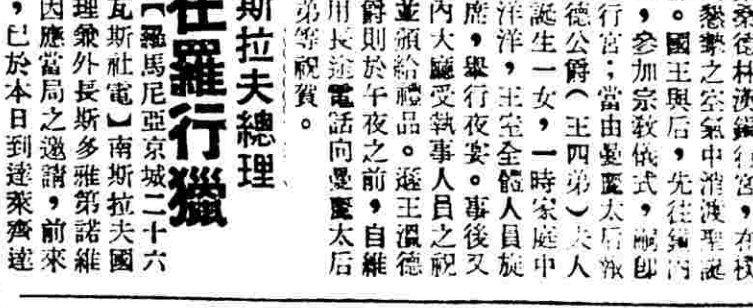 往林
懇摯之空氣中消渡聖誕
。國王與后,先往鎮內
,參加宗教儀式,嗣卽
行宮;當由曼麗太后報
德公爵(王四弟)夫人
誕生一女,一時家庭中
洋洋,王室全體人員旋
席,舉行夜宴。事後又
內大廳受執事人員之祝
並頒給禮品。遜王溫德
爵則於午夜之前,自維
用長途電話向曼麗太后
弟等祝賀。
斯拉夫總理
往羅行獵
【羅馬尼亞京城二十六
瓦斯社電】南斯拉夫國
理兼外長斯多雅第諾維
因應當局之邀請,前來
,已於本日到達萊齊達